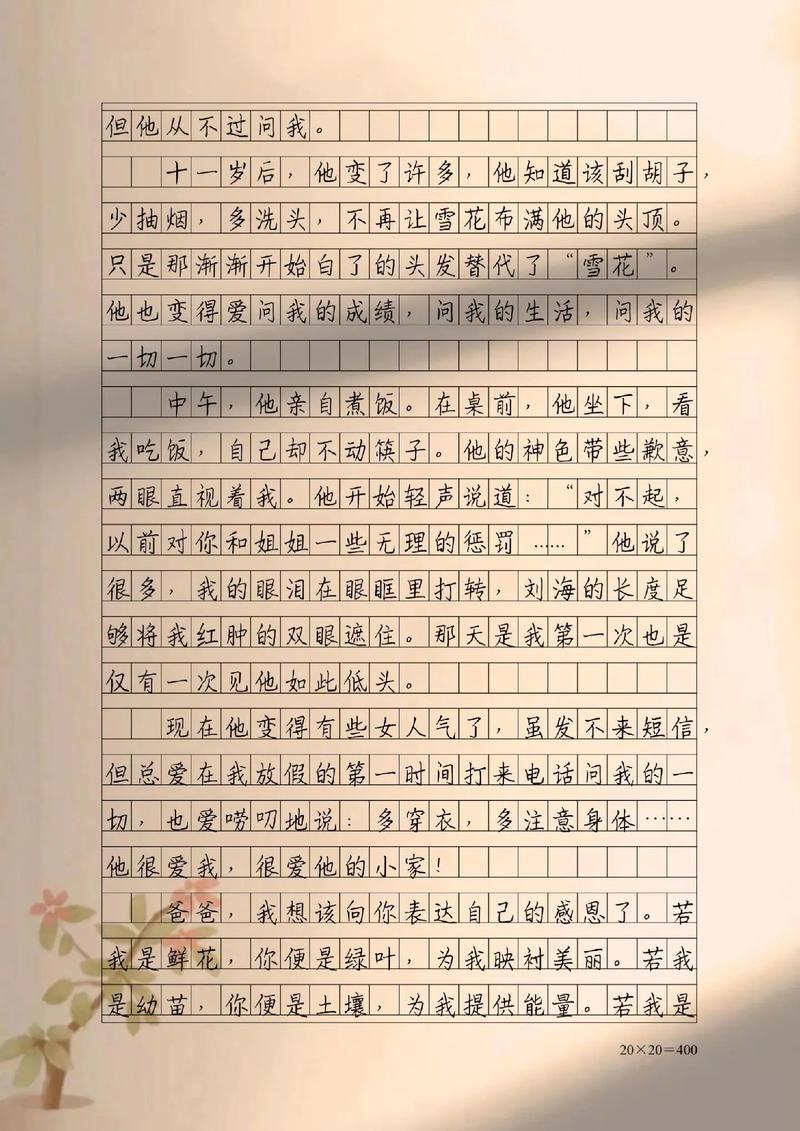 但他从不过问我。
十一岁后，他变了许多，他知道该刮胡子，
少抽烟，多洗头，不再让雪花布满他的头顶。
只是那渐渐开始白了的头发替代了“雪花”。
他也变得爱问我的成绩，问我的生活，问我的
一切一切。
中午，他亲自煮饭。在桌前，他坐下，看
我吃饭，自己却不动筷子。他的神色带些歉意，
两眼直视着我。他开始轻声说道：“对不起，
以前对你和姐姐一些无理的惩罚……”他说了
很多，我的眼泪在眼眶里打转，刘海的长度足
够将我红肿的双眼遮住。那天是我第一次也是
仅有一次见他如此低头。
现在他变得有些女人气了，虽发不来短信，
但总爱在我放假的第一时间打来电话问我的一
切，也爱唠叨地说：多穿衣，多注意身体……
他很爱我，很爱他的小家！
爸爸，我想该向你表达自己的感恩了。若
我是鲜花，你便是绿叶，为我映衬美丽。若我
是幼苗，你便是土壤，为我提供能量。若我是
20×20=400